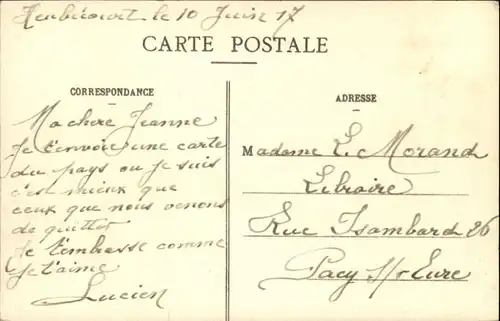 Heubécourt le 10 Juin 17
CARTE POSTALE
CORRESPONDANCE
Ma chere Jeanne
Je t'envoie une carte
du pays ou je suis
c'est mieux que
ceux que nous venons
de quitter
Je t'embrasse comme
Je t'aime
Lucien
ADRESSE
Madame L. Morand
Libraire
Rue Isambard 26
Pacy s/r Eure